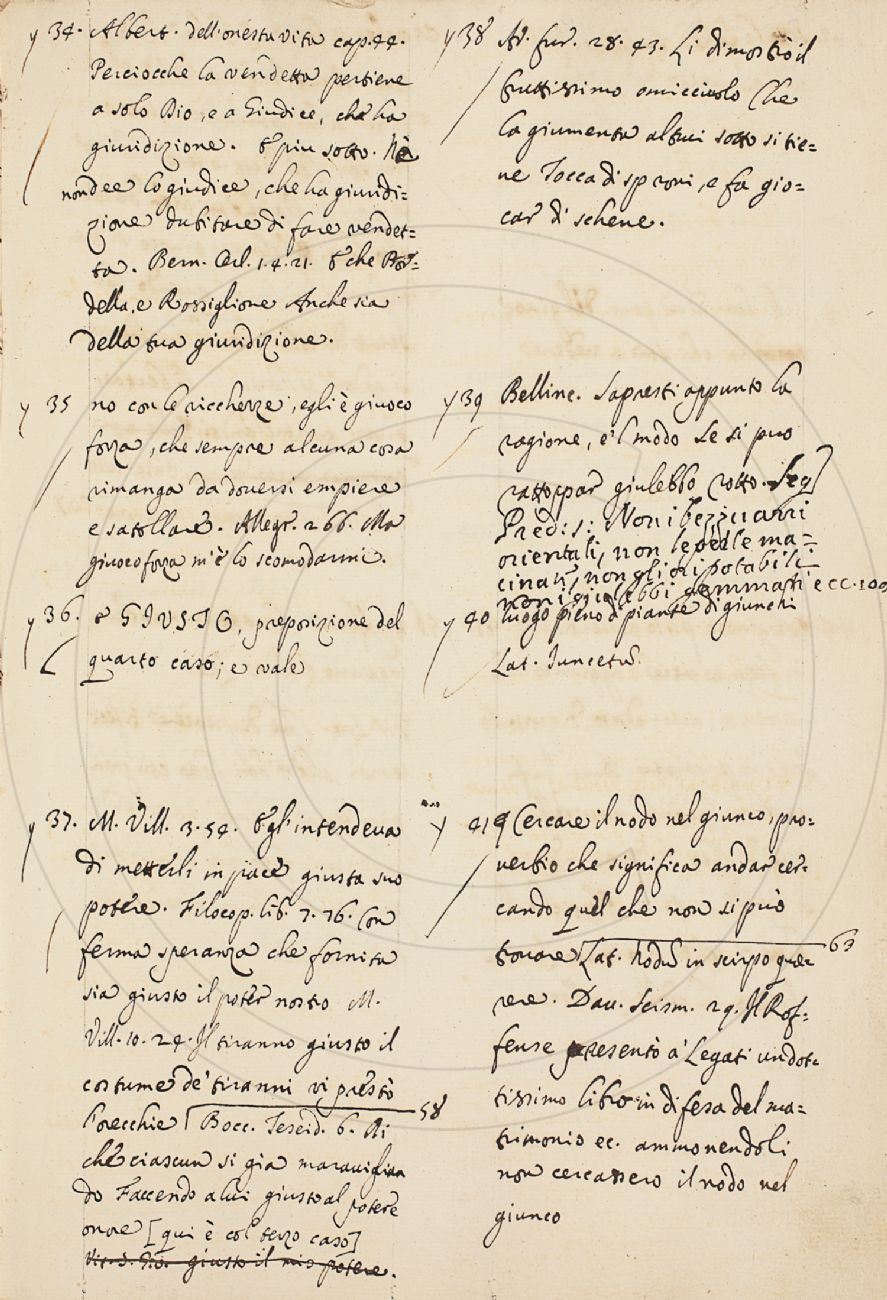 y 34. Albert. dell'onesta vita cap. 44.
Perciocche la vendetta pertiene
a solo Dio, e a Giudice, che ha
giuridizione. E piu sotto. Ne
non dee lo giudice, che ha giuridi=
zione dubitare di fare vendet=
ta. Bern. Orl. 1. 4. 21. E che
della, e Rossiglione Anche sia
della tua giuridizione.
y 35 no con le ricchezze, egli è giuoco
forza, che sempre alcuna cosa
rimanga da doversi empiere
e satollare. Allegr. 266. Ma
giuocoforza m'è lo scomodarmi.
y 36. E GIUSTO, preposizione del
quarto caso; e vale
y 37. M. Vill. 3. 54. Egl'intendeva
di metterli in pace giusta suo
potere. Filocop. lib. 7. 76. Con
ferma speranza che fornita
sia giusto il poter nostro M.
Vill. 10. 24. Il tiranno giusto il
costume de' tiranni vi prestò
l'orecchie [Bocc. Teseid. 6. Di 58
che ciascun si gia maraviglian
do Faccendo a lui giusto al potere
onore [qui è col terzo caso]
giusto il mio potere.
y 38 Ar. Fur. 28. 43. Li dimostrò il
bruttissimo omicciuolo Che
la giumenta altrui sotto si tie=
ne Tocca di sproni, e fa gio=
car di schene.
y 39 Bellinc. Sapresti appunto la
ragione, e 'l modo Se si può
rattoppar giulebbo rotto. Seg]
Pred. 5: Non i bezzuarri
orientali, non le pelle ma=
cinati, non gli ori potabili
non i giulebbi gemmati ecc. 109
y 40 luogo pieno di piante di giunchi
Lat. Iuncetũ.
y 41 q Cercare il nodo nel giunco, pro=
verbio che significa andar cer=
cando quel che non si può
trovare [Lat. Nodũ in scirpo quae= 63
rere. Dav. Scism. 29. Il Rof=
fense presentò a' Legati un dot=
tissimo libro in difesa del ma=
trimonio ec. ammonendoli
non cercassero il nodo nel
giunco